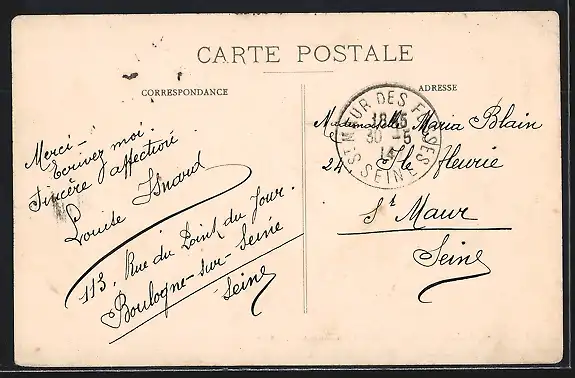 CARTE POSTALE
CORRESPONDANCE
Merci -
Ecrivez moi.
Sincère affection
Louise Isnard
113, Rue du Point du Jour.
Boulogne-sur-Seine
Seine
ADRESSE
Mademoiselle Maria Blain
24 Ile fleurie
St Maur
Seine
UR DES FOSSES
18 45
30 - 5
14
SEINE